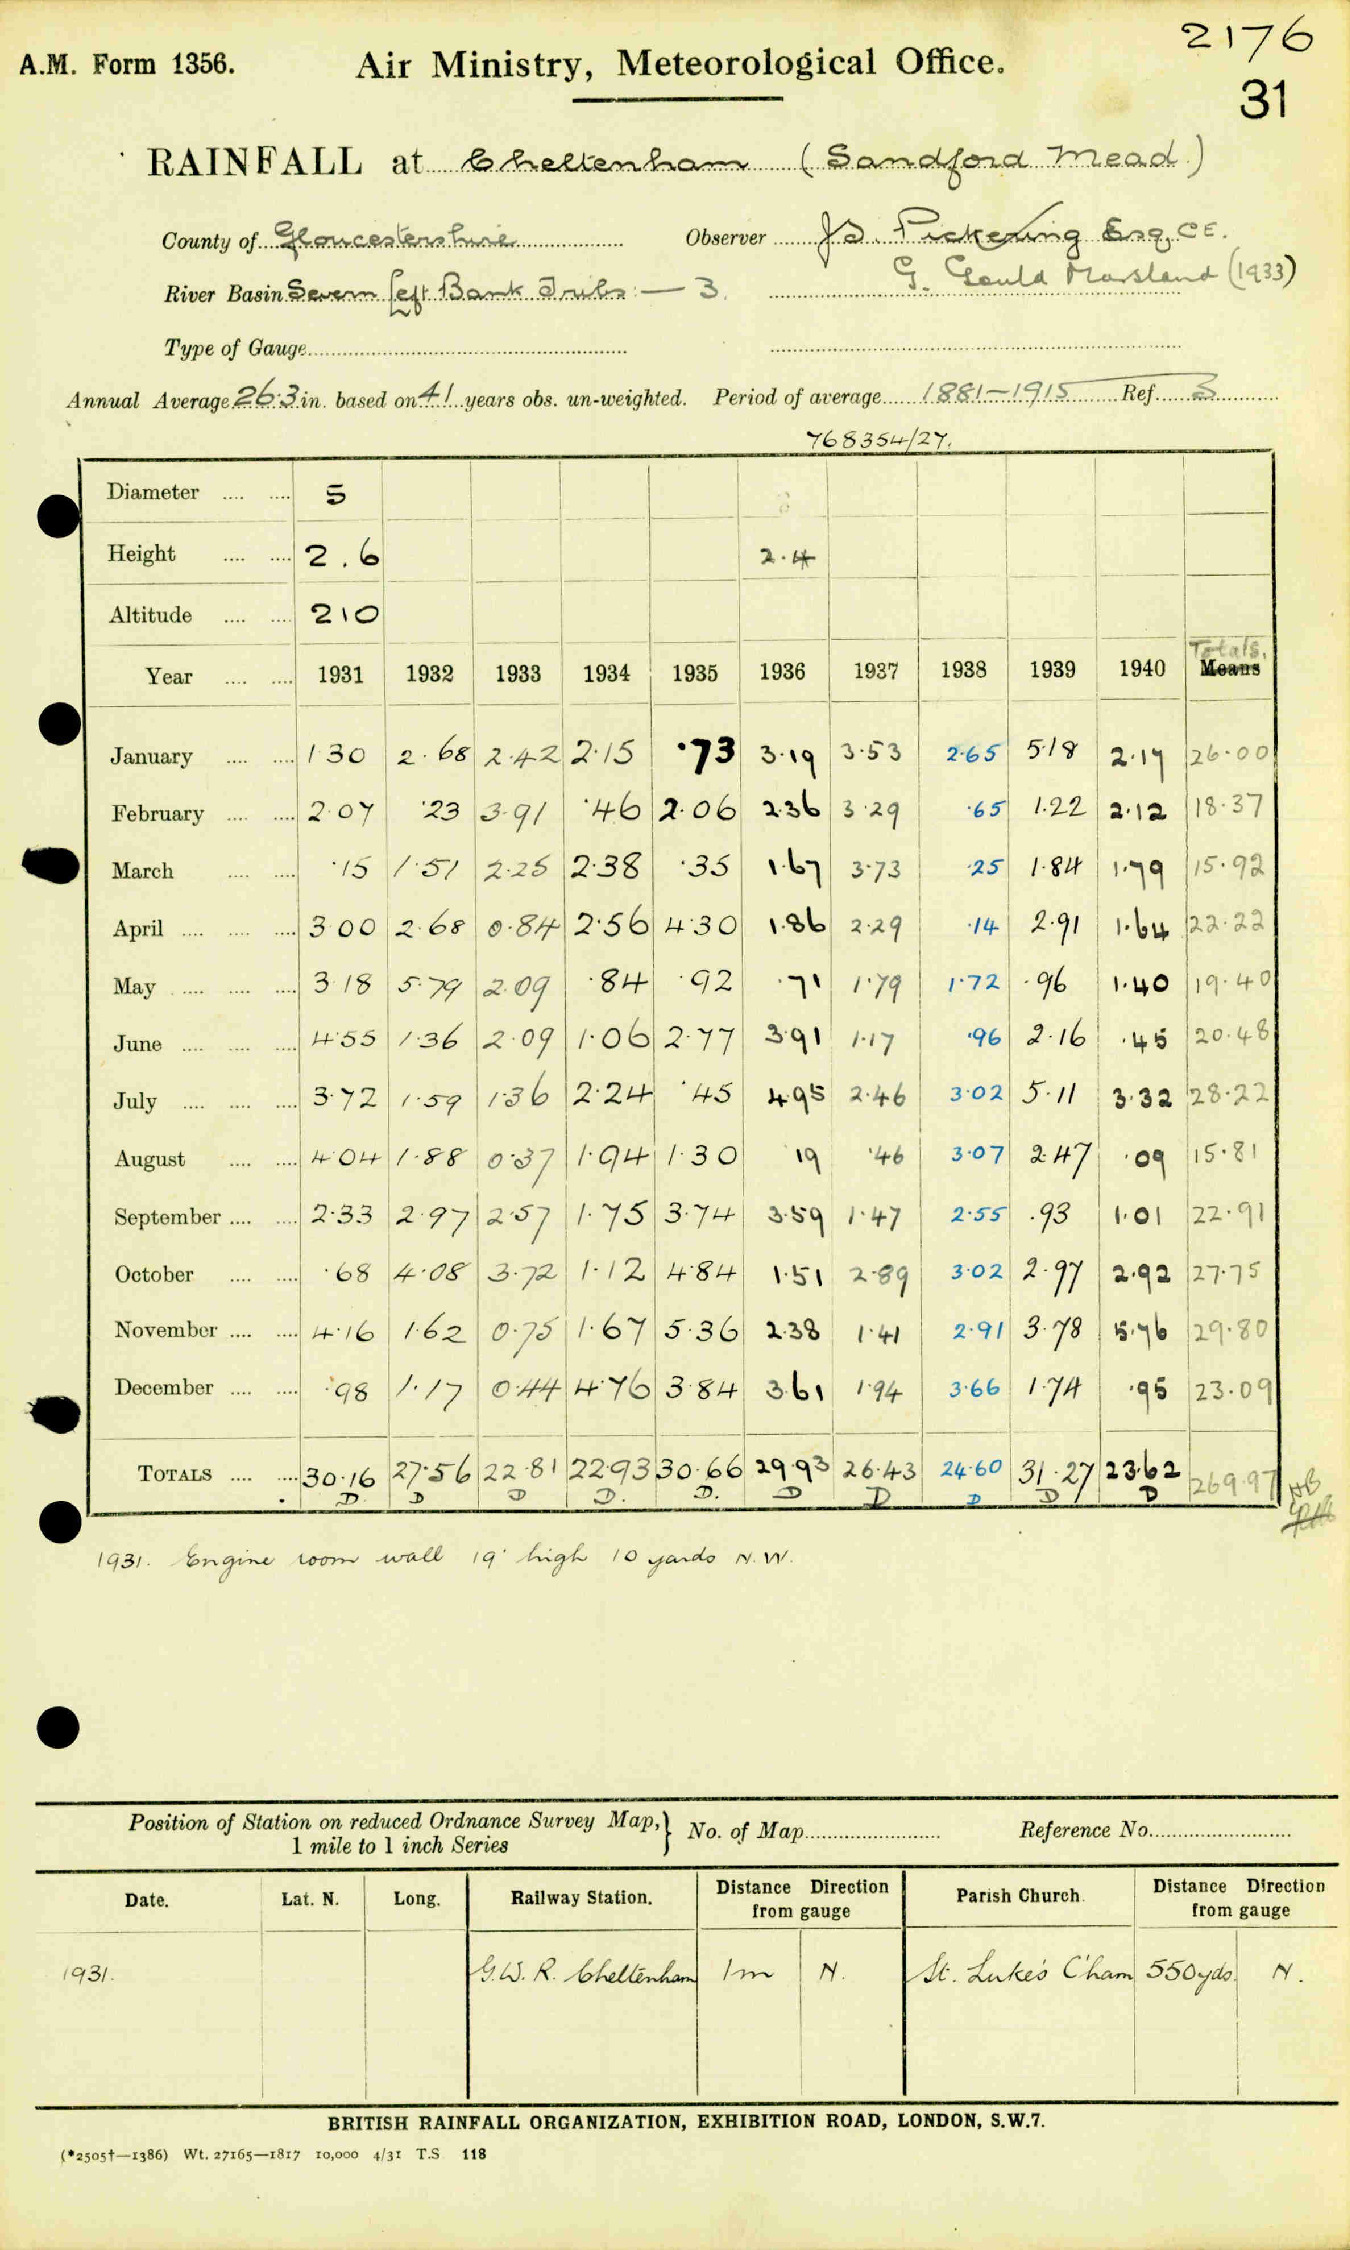 2176
A.M. Form 1356. Air Ministry, Meteorological Office.
31
RAINFALL at Cheltenham (Sandford Mead)
County of Gloucestershire Observer J.S. Pickering Esq. C.E.
G. Gould Marsland (1933)
River Basin Severn Left Bank Tribs — 3.
Type of Gauge
Annual Average 26.3 in. based on 41 years obs. un-weighted. Period of average 1881-1915 Ref. S
768354/27.
Diameter .... .... 5
Height .... .... 2.6 2.4
Altitude .... .... 210
Totals.
Year .... .... 1931 1932 1933 1934 1935 1936 1937 1938 1939 1940 Means
January .... .... 1.30 2.68 2.42 2.15 .73 3.19 3.53 2.65 5.18 2.17 26.00
February .... .... 2.07 .23 3.91 .46 2.06 2.36 3.29 .65 1.22 2.12 18.37
March .... .... .15 1.51 2.25 2.38 .35 1.67 3.73 .25 1.84 1.79 15.92
April .... .... .... 3.00 2.68 0.84 2.56 4.30 1.86 2.29 .14 2.91 1.64 22.22
May .... .... .... 3.18 5.79 2.09 .84 .92 .71 1.79 1.72 .96 1.40 19.40
June .... .... .... 4.55 1.36 2.09 1.06 2.77 3.91 1.17 .96 2.16 .45 20.48
July .... .... .... 3.72 1.59 1.36 2.24 .45 4.95 2.46 3.02 5.11 3.32 28.22
August .... .... 4.04 1.88 0.37 1.94 1.30 .19 .46 3.07 2.47 .09 15.81
September .... .... 2.33 2.97 2.57 1.75 3.74 3.59 1.47 2.55 .93 1.01 22.91
October .... .... .68 4.08 3.72 1.12 4.84 1.51 2.89 3.02 2.97 2.92 27.75
November .... .... 4.16 1.62 0.75 1.67 5.36 2.38 1.41 2.91 3.78 5.76 29.80
December .... .... .98 1.17 0.44 4.76 3.84 3.61 1.94 3.66 1.74 .95 23.09
TOTALS .... .... 30.16 27.56 22.81 22.93 30.66 29.93 26.43 24.60 31.27 23.62 269.97
D. D D D. D. D D D D D
1931. Engine room wall 19' high 10 yards N.W.
Position of Station on reduced Ordnance Survey Map,} No. of Map Reference No.
1 mile to 1 inch Series
Date. Lat. N. Long. Railway Station. Distance Direction from gauge Parish Church Distance Direction from gauge
1931. G.W.R. Cheltenham 1m N. St. Luke's C'ham 550yds. N.
BRITISH RAINFALL ORGANIZATION, EXHIBITION ROAD, LONDON, S.W.7.
(*2505†—1386) Wt. 27165—1817 10,000 4/31 T.S 118